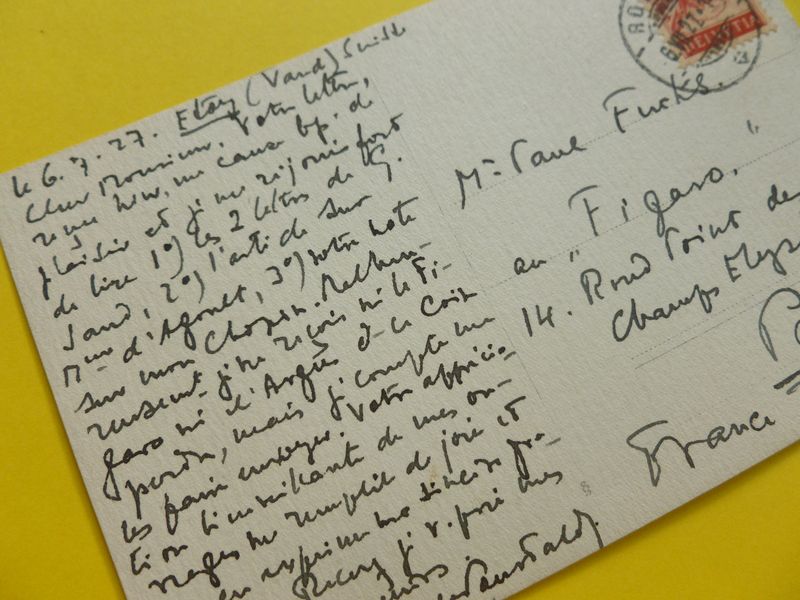 le 6.7.27. Etoy (Vaud) Suisse
Cher Monsieur, Votre lettre,
reçue hier, me cause bp. de
plaisir et je me réjouis fort
de lire 1°) les 2 lettres de G.
Sand, 2°) l'article sur
Mme d'Agoult, 3°) votre note
sur mon Chopin. Malheu-
reusement je ne reçois ni le Fi-
garo ni d'Argus en ce coin
perdu, mais je compte me
les faire envoyer. Votre apprécia-
tion bienveillante de mes ou-
vrages me remplit de joie et
exprime ma sincère gra-
je v. prie mes
Mr Paul Fuchs.
au "Figaro"
14. Rond Point des
Champs Elys
Pa
France
HELVETIA